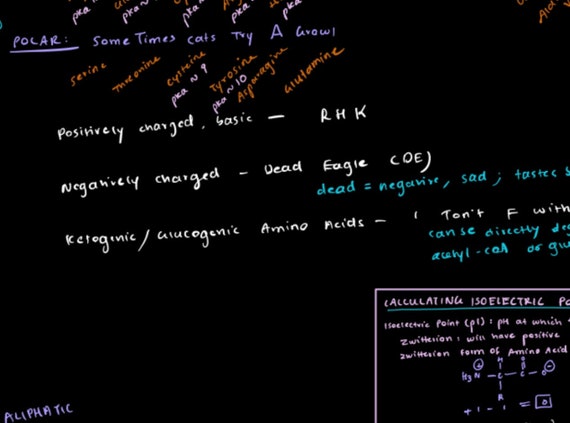 pka ~
pka ~
pka ~
pka ~
pka ~
POLAR: SomeTimes cats Try A Growl
serine Threonine cysteine Tyrosine Asparagine Glutamine
pka ~ 9 pka ~ 10
Positively charged, basic — R H K
Negatively charged - Dead Eagle (DE)
dead = negative, sad; tastes s
Ketogenic/Glucogenic Amino Acids - I Ton't F with
can be directly de
acetyl-coA or glu
CALCULATING ISOELECTRIC PO
Isoelectric Point (pI): pH at which
Zwitterion: will have positive
zwitterion form of Amino Acid
H₃N - C - C - O
H O
R
+1 - 1 = 0
ALIPHATIC